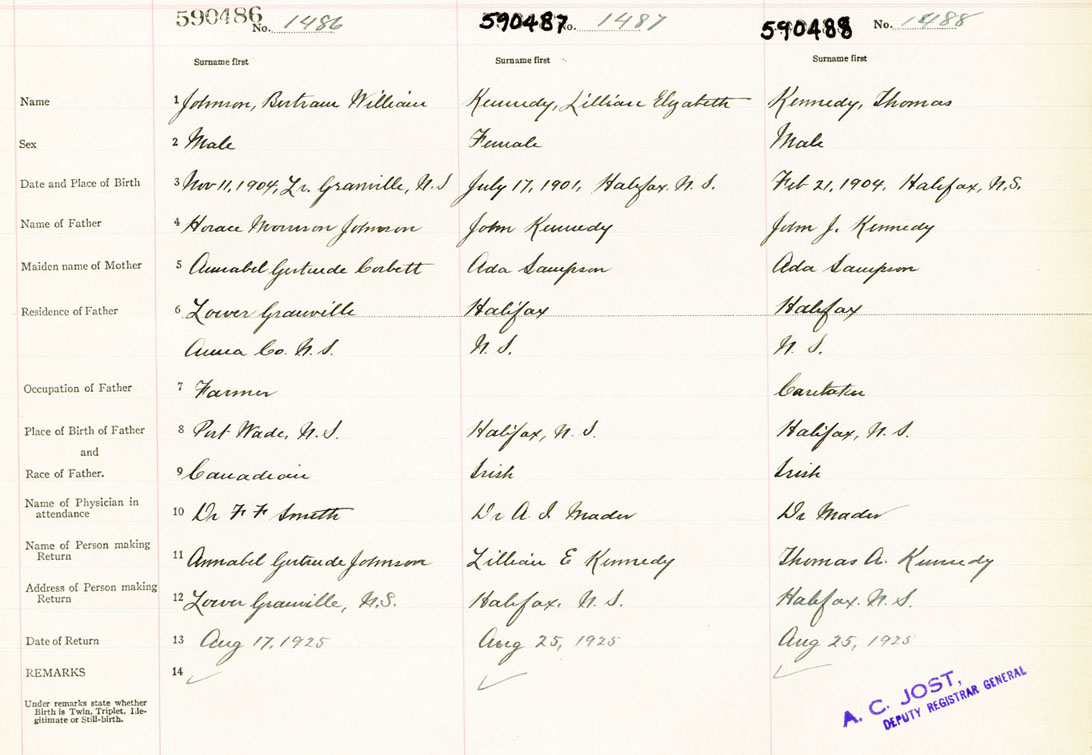 590486 No. 1486 590487 No. 1487 590488 No. 1488
Surname first Surname first Surname first
Name 1 Johnson, Bertram William Kennedy, Lillian Elizabeth Kennedy, Thomas
Sex 2 Male Female Male
Date and Place of Birth 3 Nov 11, 1904, Lr. Granville, N.S July 17, 1901, Halifax, N.S. Feb 21, 1904, Halifax, N.S.
Name of Father 4 Horace Morrison Johnson John Kennedy John J. Kennedy
Maiden name of Mother 5 Annabel Gertrude Corbett Ada Sampson Ada Sampson
Residence of Father 6 Lower Granville Halifax Halifax
Anna Co. N.S. N.S. N.S.
Occupation of Father 7 Farmer Caretaker
Place of Birth of Father 8 Port Wade, N.S. Halifax, N.S. Halifax, N.S.
and
Race of Father. 9 Canadian Irish Irish
Name of Physician in
attendance 10 Dr F F Smith Dr A. I. Mader Dr Mader
Name of Person making
Return 11 Annabel Gertrude Johnson Lillian E Kennedy Thomas A. Kennedy
Address of Person making
Return 12 Lower Granville, N.S. Halifax. N.S. Halifax. N.S.
Date of Return 13 Aug 17, 1925 Aug 25, 1925 Aug 25, 1925
REMARKS 14
Under remarks state whether
Birth is Twin, Triplet, Ille-
gitimate or Still-birth.
A. C. JOST,
DEPUTY REGISTRAR GENERAL